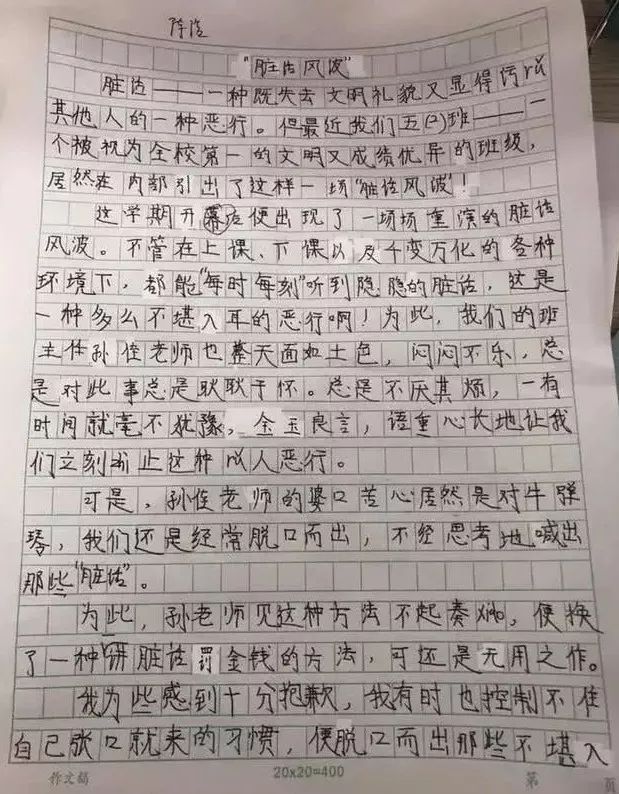 陈浩
"脏话风波"
脏话——一种既失去文明礼貌又显得污
其他人的一种恶行。但最近我们五(2)班——一
个被视为全校第一的文明又成绩优异的班级，
居然在内部引出了这样一场"脏话风波"！
这学期开幕后便出现了一场场重演的脏话
风波。不管在上课、下课以及千变万化的各种
环境下，都能"每时每刻"听到隐隐的脏话，这是
一种多么不堪入耳的恶行啊！为此，我们的班
主任孙佳老师也整天面如土色，闷闷不乐，总
是对此事总是耿耿于怀。总是不厌其烦，一有
时间就毫不犹豫，金玉良言，语重心长地让我
们立刻停止这种 恶行。
可是，孙佳老师的婆口苦心居然是对牛弹
琴，我们还是经常脱口而出，不经思考地喊出
那些"脏话"。
为此，孙老师见这种方法不起奏效，便换
了一种讲脏话罚金钱的方法，可还是无用之作。
我为些感到十分抱歉，我有时也控制不住
自己张口就来的习惯，便脱口而出那些不堪入
作文稿 20x20=400 第 页